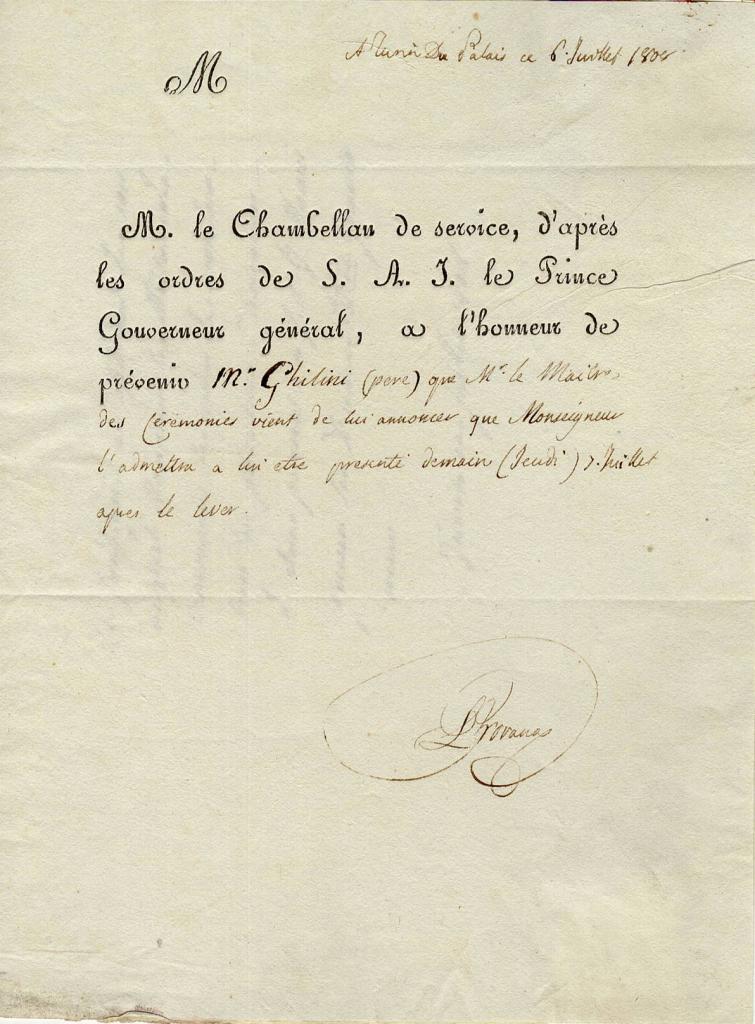 A Turin Du Palais ce 6. Juillet 1808
M
M. le Chambellan de service, d'après
les ordres de S. A. I. le Prince
Gouverneur général, a l'honneur de
prévenir Mr. Ghilini (pere) que Mr. le Maitre
des Cérémonies vient de lui annoncer que Monseigneur
l'admettra a lui etre presenté demain (Jeudi) 7. Juillet
apres le lever.